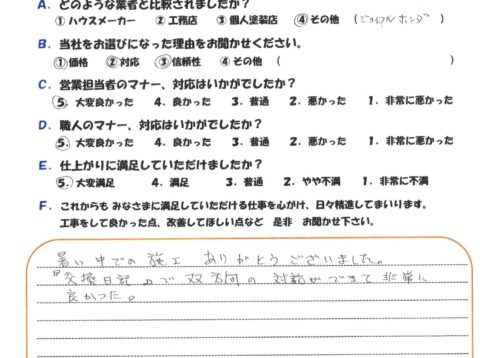 A. どのような業者と比較されましたか？
① ハウスメーカー ② 工務店 ③ 個人塗装店 ④ その他 （ジョイフルホンダ）
B. 当社をお選びになった理由をお聞かせください。
① 価格 ② 対応 ③ 信頼性 ④ その他 （ ）
C. 営業担当者のマナー、対応はいかがでしたか？
5. 大変良かった 4. 良かった 3. 普通 2. 悪かった 1. 非常に悪かった
D. 職人のマナー、対応はいかがでしたか？
5. 大変良かった 4. 良かった 3. 普通 2. 悪かった 1. 非常に悪かった
E. 仕上がりに満足していただけましたか？
5. 大変満足 4. 満足 3. 普通 2. やや不満 1. 非常に不満
F. これからも みなさまに満足していただける仕事を心がけ、日々精進してまいります。
工事をして良かった点、改善してほしい点など 是非 お聞かせ下さい。
暑い中での施工 ありがとうございました。
『交換日記』で 双方向の 対話ができて 非常に
良かった。